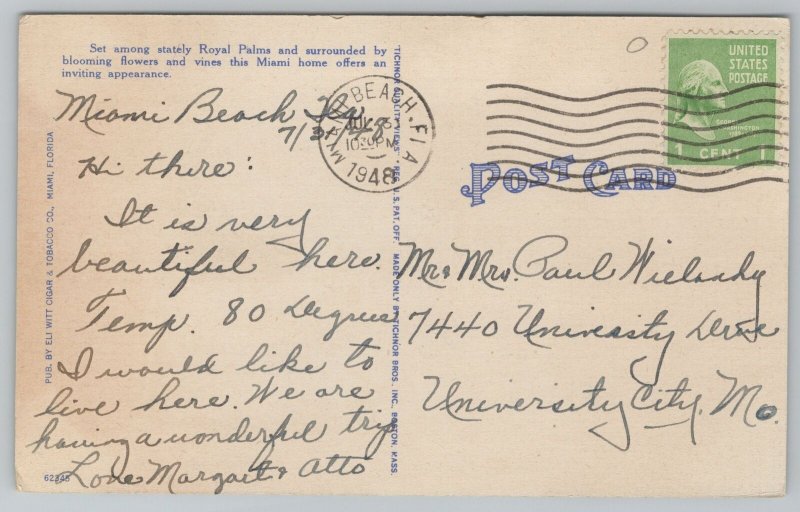 Set among stately Royal Palms and surrounded by
blooming flowers and vines this Miami home offers an
inviting appearance.
Miami Beach Fla
7/3/48
Hi there:
It is very
beautiful here.
Temp. 80 Degrees
I would like to
live here. We are
having a wonderful trip
Love Margart & Otto
62345
PUB. BY ELI WITT CIGAR & TOBACCO CO., MIAMI, FLORIDA
TICHNOR QUALITY VIEWS" REG. U.S. PAT. OFF. MADE ONLY BY TICHNOR BROS. INC. BOSTON, MASS.
MIAMI BEACH, FLA
JUL
1030PM
1948
UNITED
STATES
POSTAGE
GEORGE
WASHINGTON
1 CENT 1
POST CARD
Mr & Mrs. Paul Wielandy
7440 University Drive
University City, Mo.